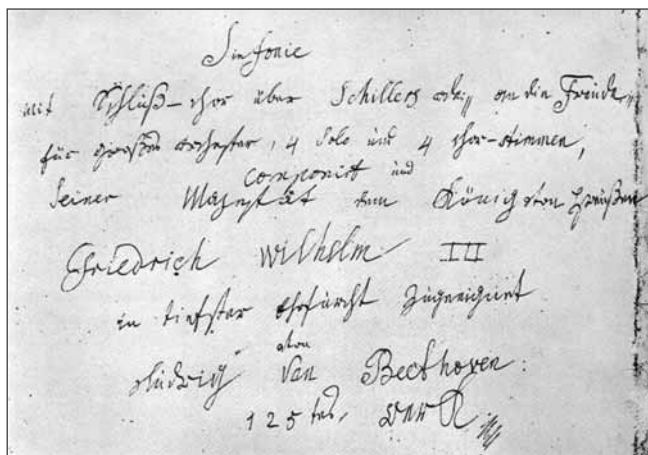 Sinfonie
mit Schluß-chor über Schillers ode „ an die Freude „
für großes orchester, 4 Solo und 4 chor-stimmen,
componirt und
Seiner Majestät dem König von Preußen
Friedrich Wilhelm III
in tiefster Ehrfurcht zugeeignet
von
Ludwig van Beethoven.
125tes Werk